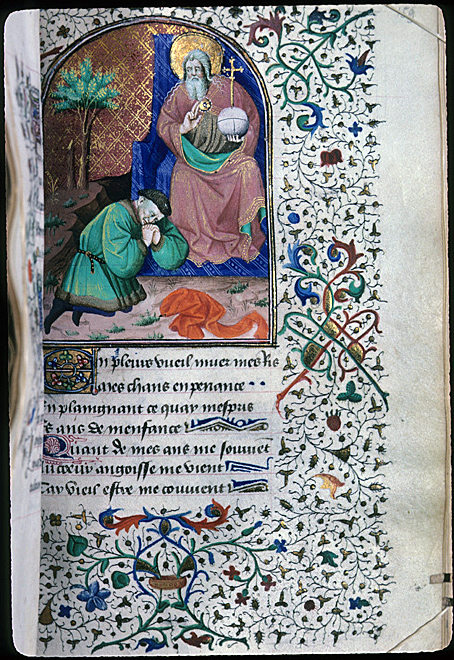 En pleurs vueil muer mes Ris
ayes chans en penance
n plaignant ce quay mespris
s ans de menfance
Quant de mes ans me souuet
u cueur angoisse me vient
ay vieil estre me conuient